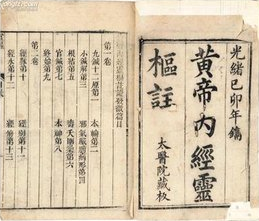 光緒己卯年鐫
黃帝內經靈
樞註
太醫院藏板
第一卷
九鍼十二原第一
本輸第二
小鍼解第三
邪氣藏府病形第四
根結第五
壽夭剛柔第六
官鍼第七
本神第八
終始第九
第二卷
經脉第十
經別第十一
經水第十二